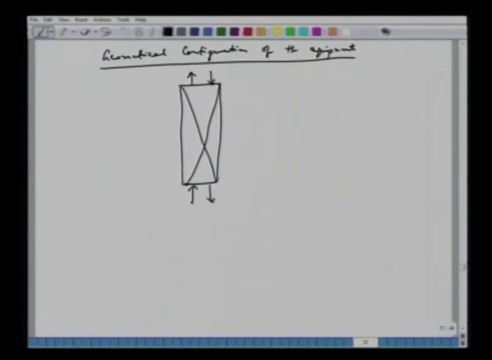 File Edit View Insert Actions Tools Help
Geometrical Configuration of the equipment